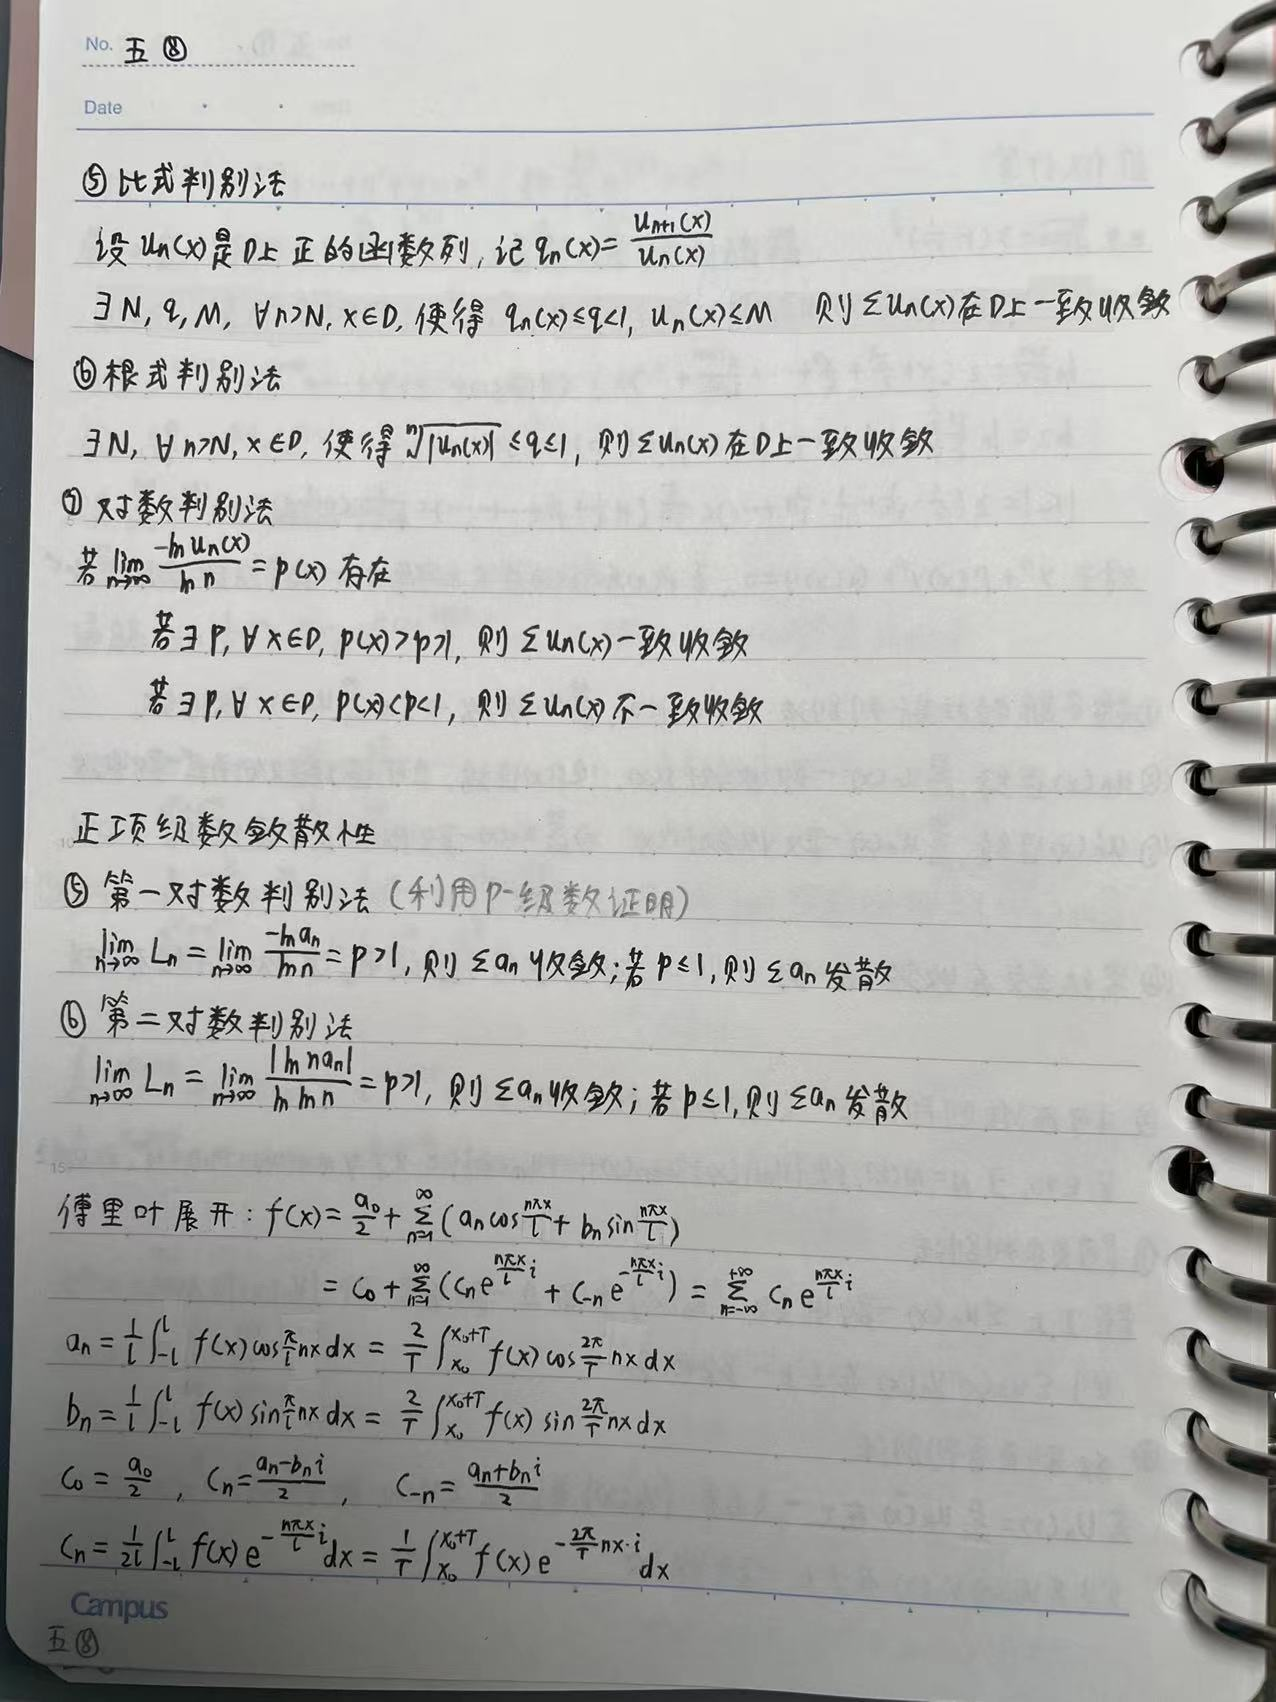 No. 五 ⑧
Date
⑤ 比式判别法
设 uₙ(x) 是 D上 正的函数列, 记 qₙ(x)= uₙ₊₁(x)/uₙ(x)
∃ N, q, M, ∀n>N, x∈D, 使得 qₙ(x)≤q<1, uₙ(x)≤M 则 Σuₙ(x)在D上一致收敛
⑥ 根式判别法
∃N, ∀n>N, x∈D, 使得 ⁿ√|uₙ(x)| ≤q≤1, 则Σuₙ(x) 在D上一致收敛
⑦ 对数判别法
若 lim_{n→∞} -ln uₙ(x)/ln n = p(x) 存在
若∃ p, ∀ x∈D, p(x)>p>1, 则 Σuₙ(x)一致收敛
若∃p, ∀ x∈D, p(x)<p<1, 则 Σuₙ(x)不一致收敛
正项级数敛散性
⑤ 第一对数判别法 (利用p-级数证明)
lim_{n→∞} Lₙ = lim_{n→∞} -ln aₙ/ln n = p>1, 则 Σaₙ 收敛; 若 p≤1, 则 Σaₙ 发散
⑥ 第二对数判别法
lim_{n→∞} Lₙ = lim_{n→∞} |ln naₙ|/ln ln n = p>1, 则 Σaₙ收敛; 若 p≤1, 则 Σaₙ 发散
傅里叶展开: f(x)= a₀/2 + Σ_{n=1}^{∞} (aₙcos nπx/l + bₙ sin nπx/l)
= c₀ + Σ_{n=1}^{∞} (cₙe^{nπx/l i} + c₋ₙe^{-nπx/l i}) = Σ_{n=-∞}^{+∞} cₙ e^{nπx/l i}
aₙ = 1/l ∫_{-l}^{l} f(x)cos π/l nx dx = 2/T ∫_{x₀}^{x₀+T} f(x) cos 2π/T nx dx
bₙ = 1/l ∫_{-l}^{l} f(x) sin π/l nx dx = 2/T ∫_{x₀}^{x₀+T} f(x) sin 2π/T nx dx
c₀ = a₀/2 , cₙ = (aₙ-bₙi)/2 , c₋ₙ = (aₙ+bₙi)/2
cₙ = 1/2l ∫_{-l}^{l} f(x) e^{-nπx/l i} dx = 1/T ∫_{x₀}^{x₀+T} f(x) e^{-2π/T nx·i} dx
Campus
五 ⑧